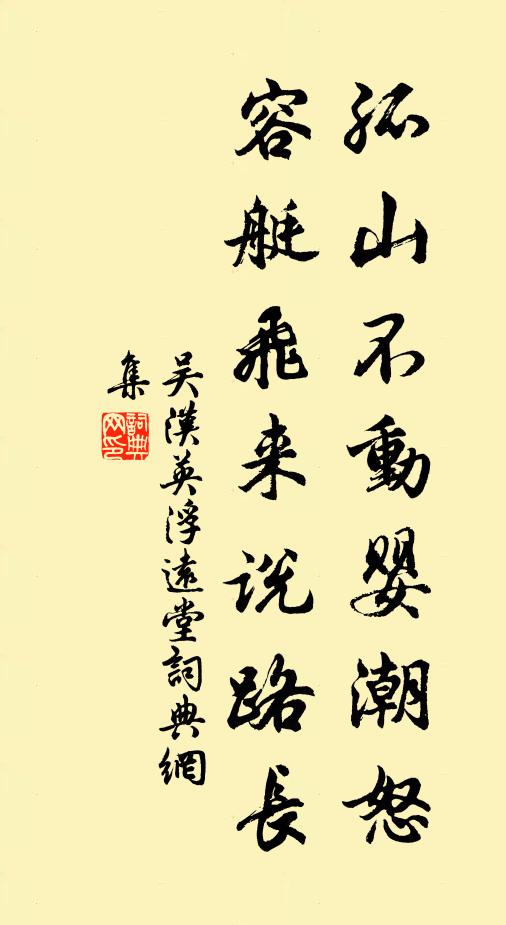 孤山不動嬰潮怒
容艇飛来説路長
吴漢英浮遠堂詞典網
集
詞典网印